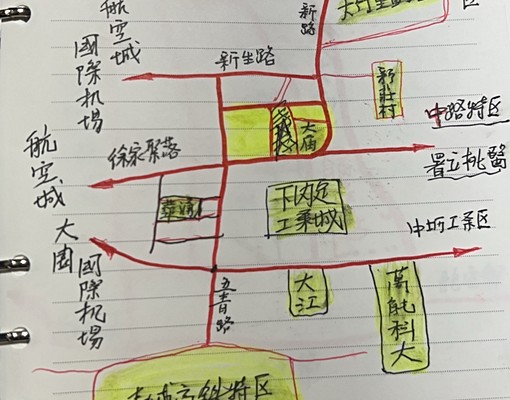 航空城
國際机場
新路
区
新生路
新莊村
大庙
中路特区
署立桃醫
航空城
徐家聚落
下内定
工業城
中坜工業区
大園
國際机場
五青路
大江
萬能科大
青埔高鉄特区